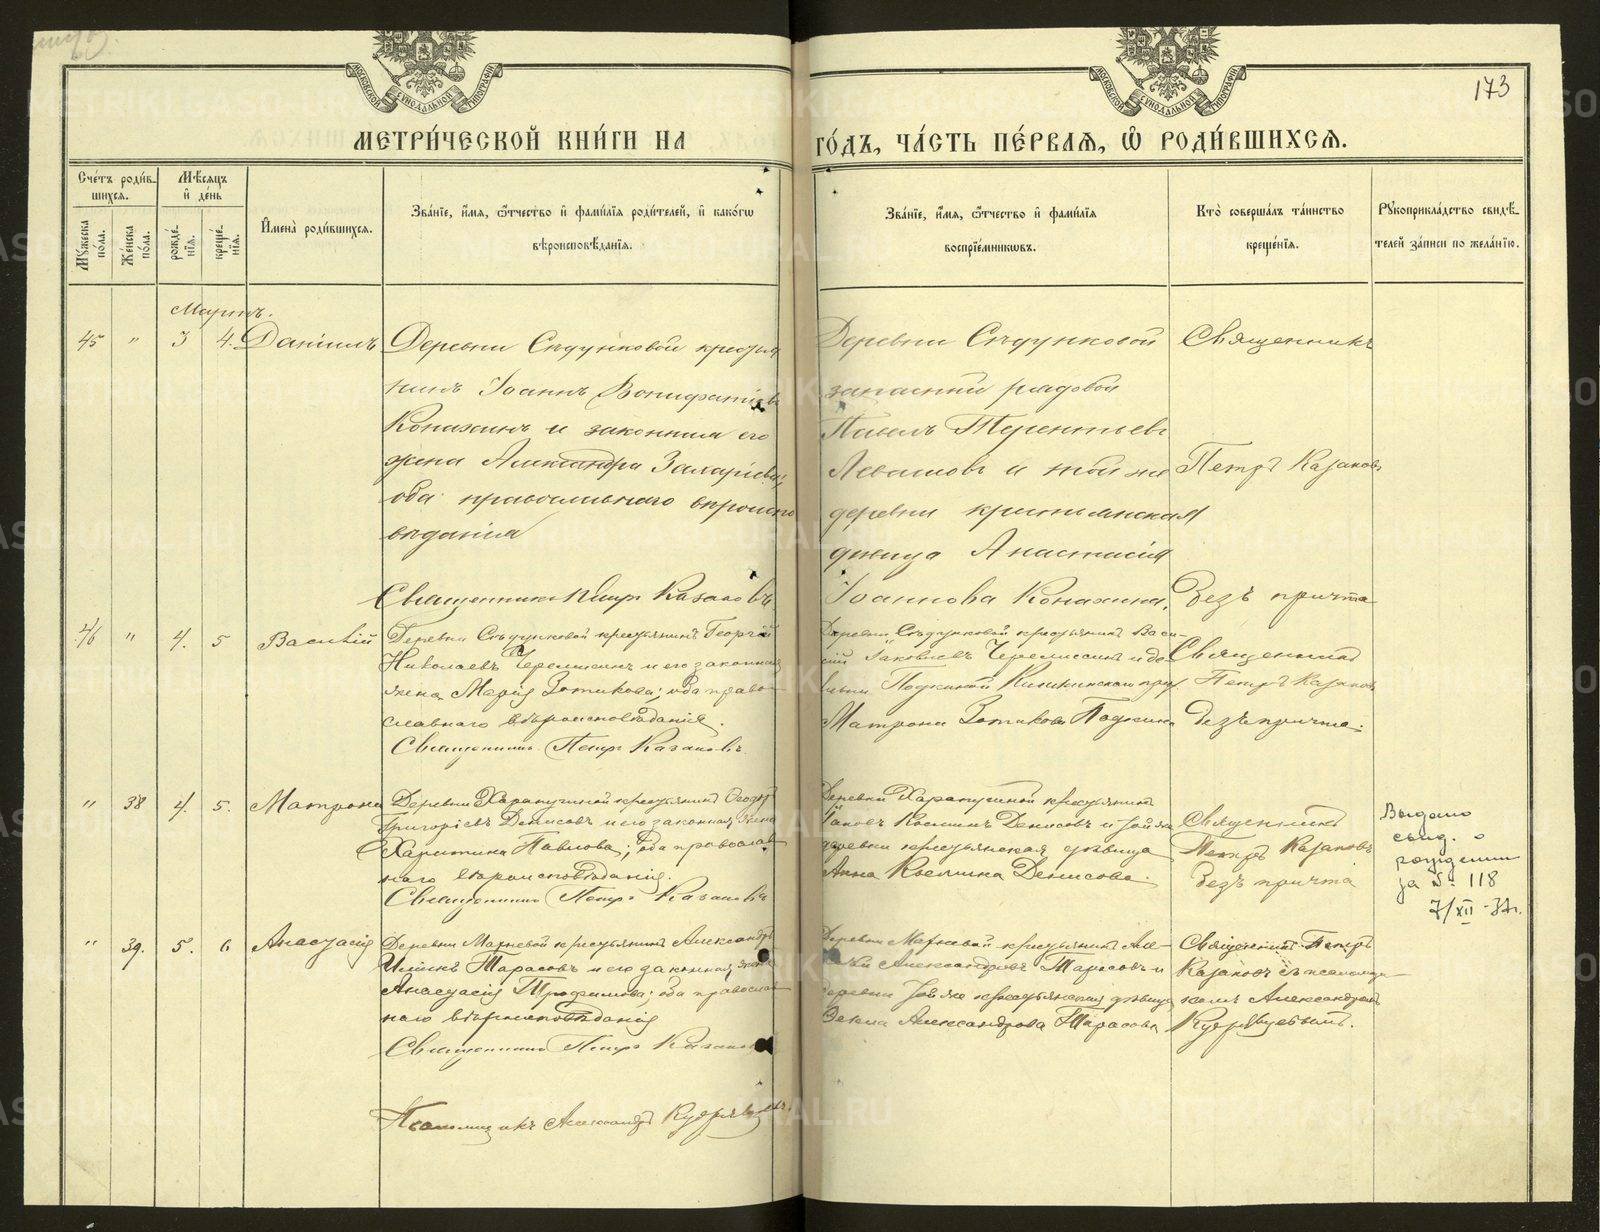 173
МОСКОВСКОЙ СѴНОДАЛЬНОЙ ТИПОГРАФІИ
МОСКОВСКОЙ СѴНОДАЛЬНОЙ ТИПОГРАФІИ
МЕТРИ́ЧЕСКОЙ КНИ́ГИ НА ГО́ДЪ, ЧА́СТЬ ПЕ́РВАѦ, Ѽ РОДИ́ВШИХСѦ.
Сче́тъ роди́в-
шихсѧ.
Мꙋ́жеска по́ла.
Же́нска по́ла.
Мѣ́сѧцъ
и҆ де́нь
рожде́-нїѧ.
креще́-нїѧ.
И҆мена̀ роди́вшихсѧ.
Зва́нїе, и҆́мѧ, ѻ҆́тчество и҆ фами́лїѧ роди́телей, и҆ како́гѡ
вѣроисповѣ́данїѧ.
Зва́нїе, и҆́мѧ, ѻ҆́тчество и҆ фами́лїѧ
воспрїе́мникѡвъ.
Кто̀ соверша́лъ та́инство
креще́нїѧ.
Рꙋкоприкла́дство свидѣ́-
телей за́писи по жела́нїю.
Мартъ.
45 " 3 4. Даніилъ
Деревни Сѣдунковой крестья
нинъ Іоаннъ Вонифатіевъ
Конахинъ и законная его
жена Александра Захаріева,
оба православнаго вѣроиспо
вѣданія
Священникъ Петръ Казаковъ
Деревни Сѣдунковой
запасный рядовой
Павелъ Терентьевъ
Левашовъ и той же
деревни крестьянская
дѣвица Анастасія
Іоаннова Конахина.
Священникъ
Петръ Казаковъ
Безъ причта
46 " 4. 5 Василій
Деревни Сѣдунковой крестьянинъ Георгій
Николаевъ Черемисинъ и его законная
жена Марія Зотикова; оба право
славнаго вѣроисповѣданія.
Священникъ Петръ Казаковъ
Деревни Сѣдунковой крестьянинъ Васи-
лій Іаковлевъ Черемисинъ и де
Матрона Зотикова
Священникъ
Петръ Казаковъ
Безъ причта.
" 38 4. 5. Матрона
Деревни крестьянинъ Ѳеодоръ
Григоріевъ Денисовъ и его законная жена
Харитина Павлова; оба православ
наго вѣроисповѣданія.
Священникъ Петръ Казаковъ
Деревни крестьянинъ
Іаковъ Косминъ Денисовъ и той же
деревни крестьянская дѣвица
Анна Космина Денисова.
Священникъ
Петръ Казаковъ
Безъ причта
Выдано
свид. о
рождении
за № 118
7/XII-37г.
" 39. 5. 6 Анастасія
Деревни крестьянинъ Александръ
Ильинъ Тарасовъ и его законная жена
Анастасія Трофимова; оба православ
наго вѣроисповѣданія
Священникъ Петръ Казаковъ
Псаломщикъ Александръ Кудрявцевъ.
Деревни крестьянинъ Але-
Александровъ Тарасовъ и
деревни той же крестьянская дѣвица
Ѳекла Александрова Тарасова
Священникъ Петръ
Казаковъ съ псаломщи-
комъ Александромъ
Кудрявцевымъ.